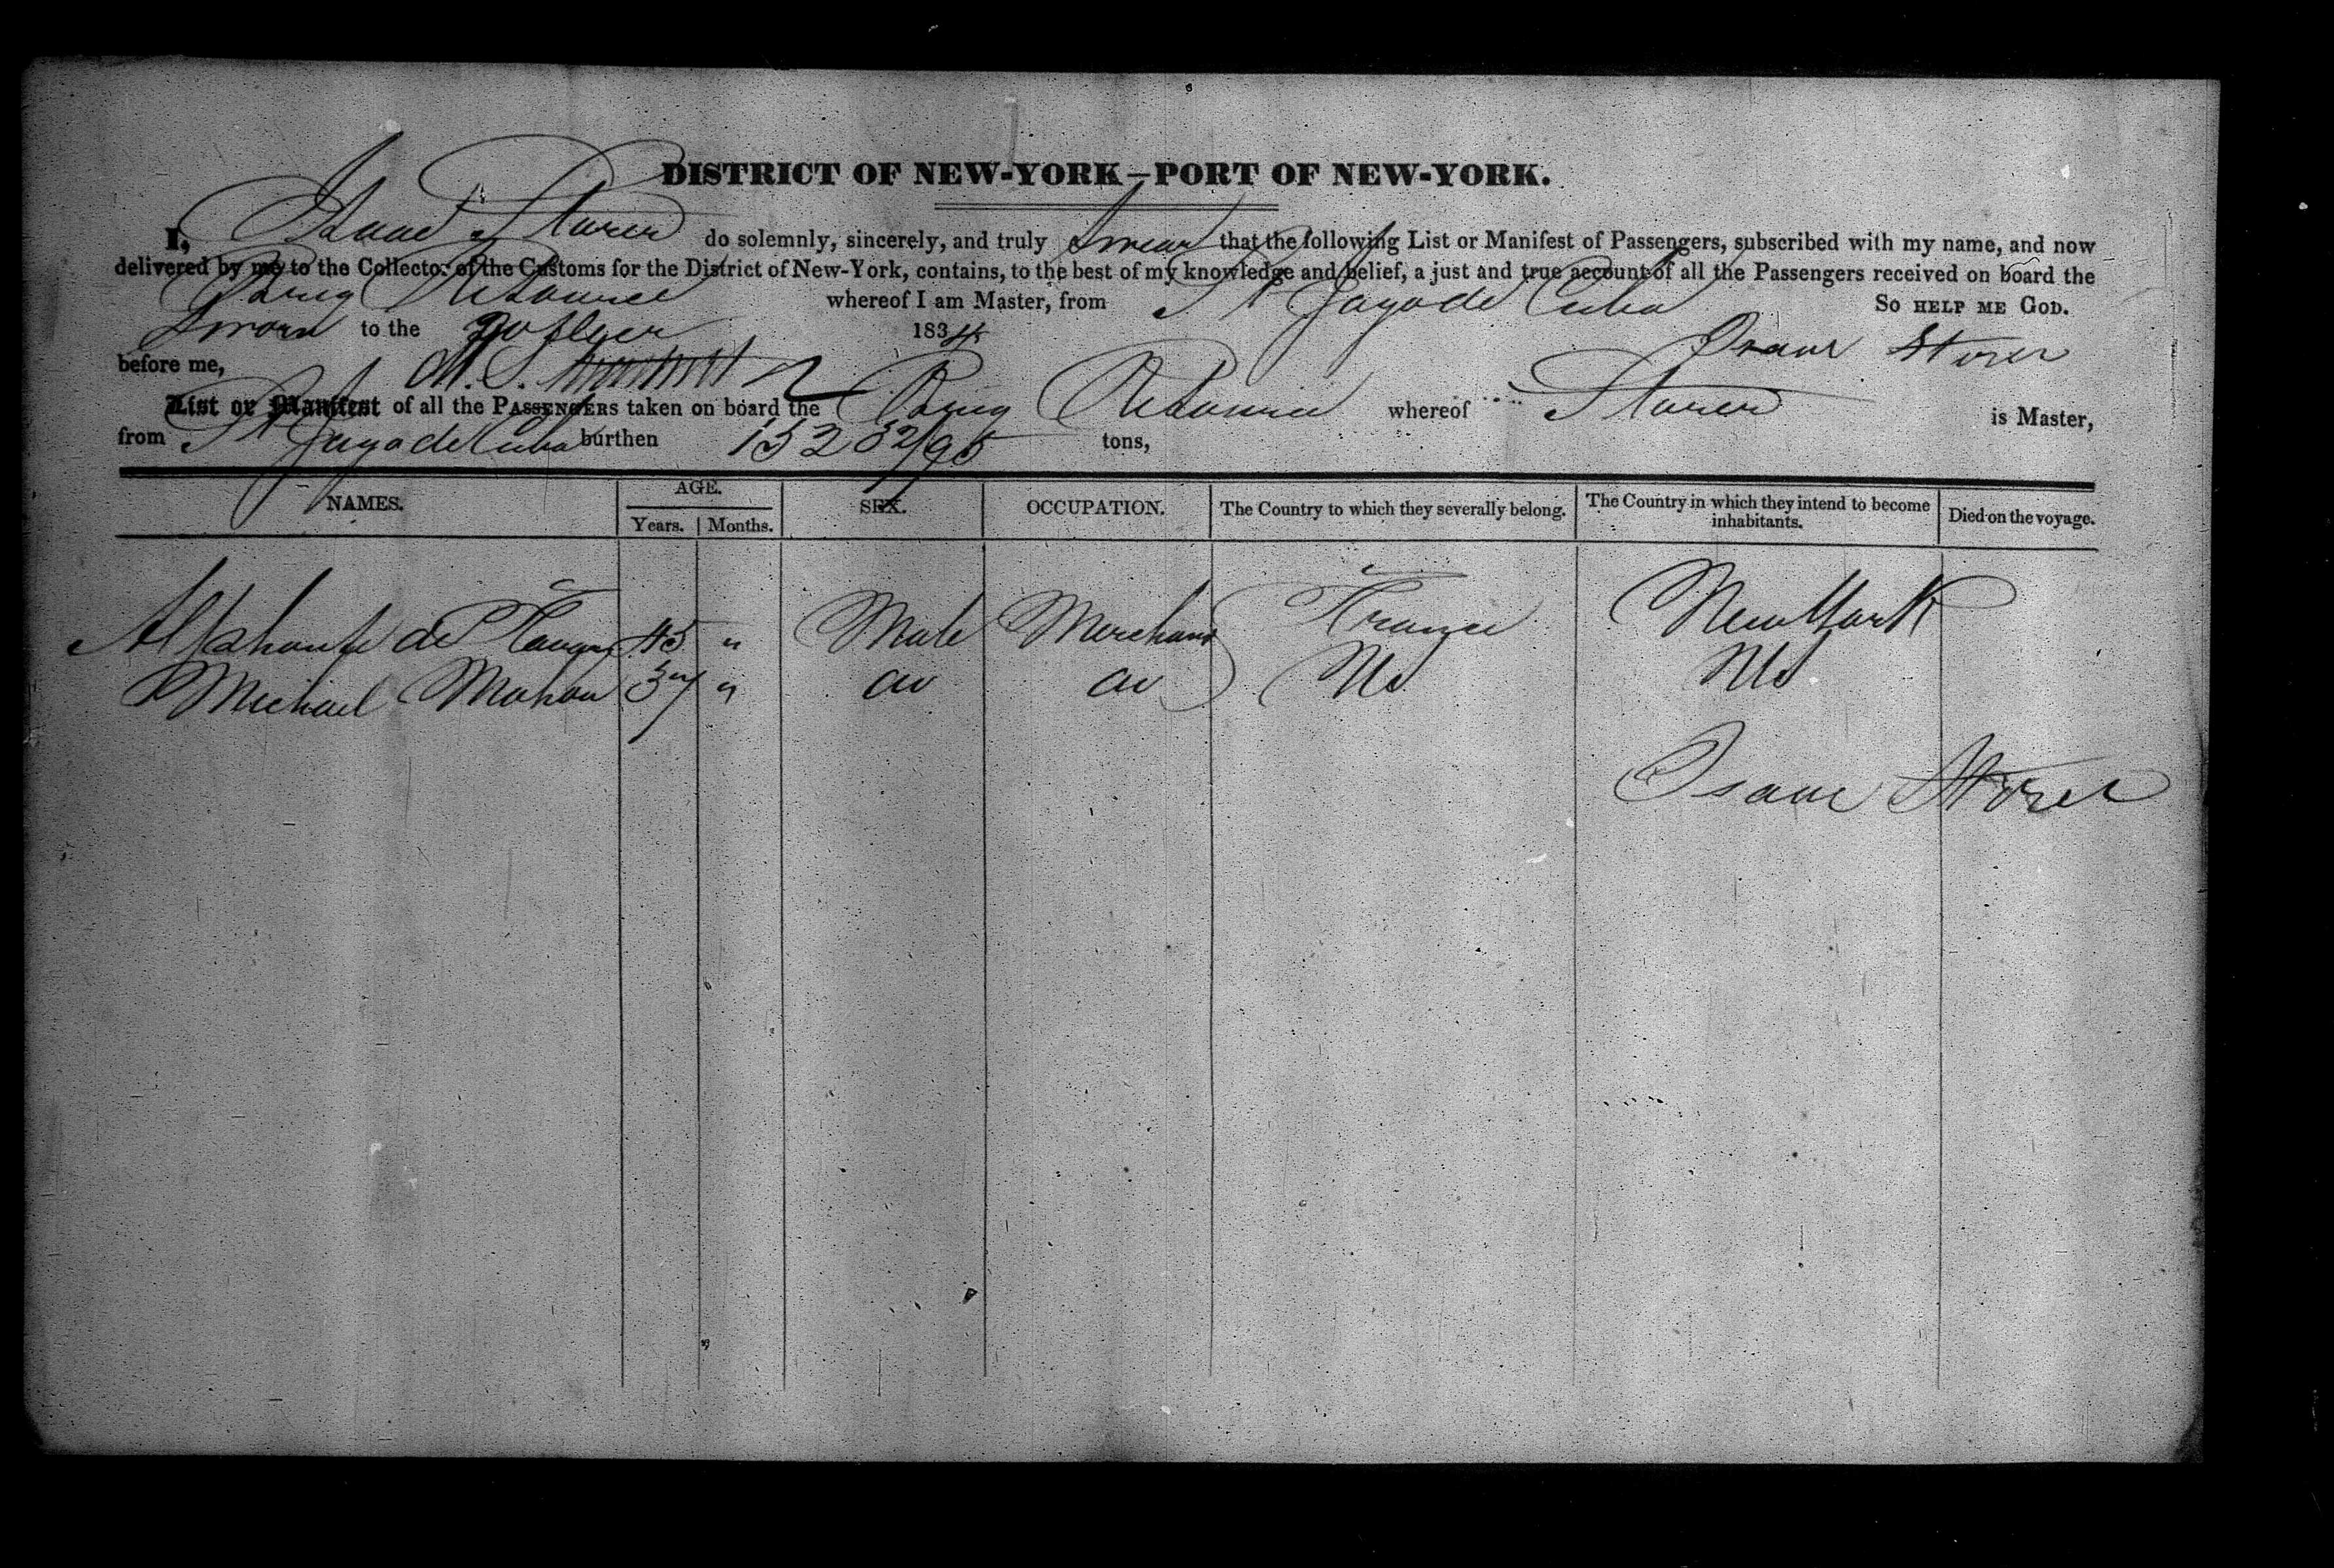 DISTRICT OF NEW-YORK—PORT OF NEW-YORK.
I, Isaac Storer do solemnly, sincerely, and truly swear that the following List or Manifest of Passengers, subscribed with my name, and now
delivered by me to the Collector of the Customs for the District of New-York, contains, to the best of my knowledge and belief, a just and true account of all the Passengers received on board the
Brig whereof I am Master, from St Jago de Cuba So HELP ME GOD.
Sworn to the 1834 Isaac Storer
before me, M. S.
List or Manifest of all the PASSENGERS taken on board the Brig whereof Storer is Master,
from St Jago de Cuba burthen 152 82/95 tons,
NAMES. AGE. SEX. OCCUPATION. The Country to which they severally belong. The Country in which they intend to become inhabitants. Died on the voyage.
Years. Months.
Alphonse de 45 " Male Merchant France New York
Michael Mahon 37 " do do US US
Isaac Storer